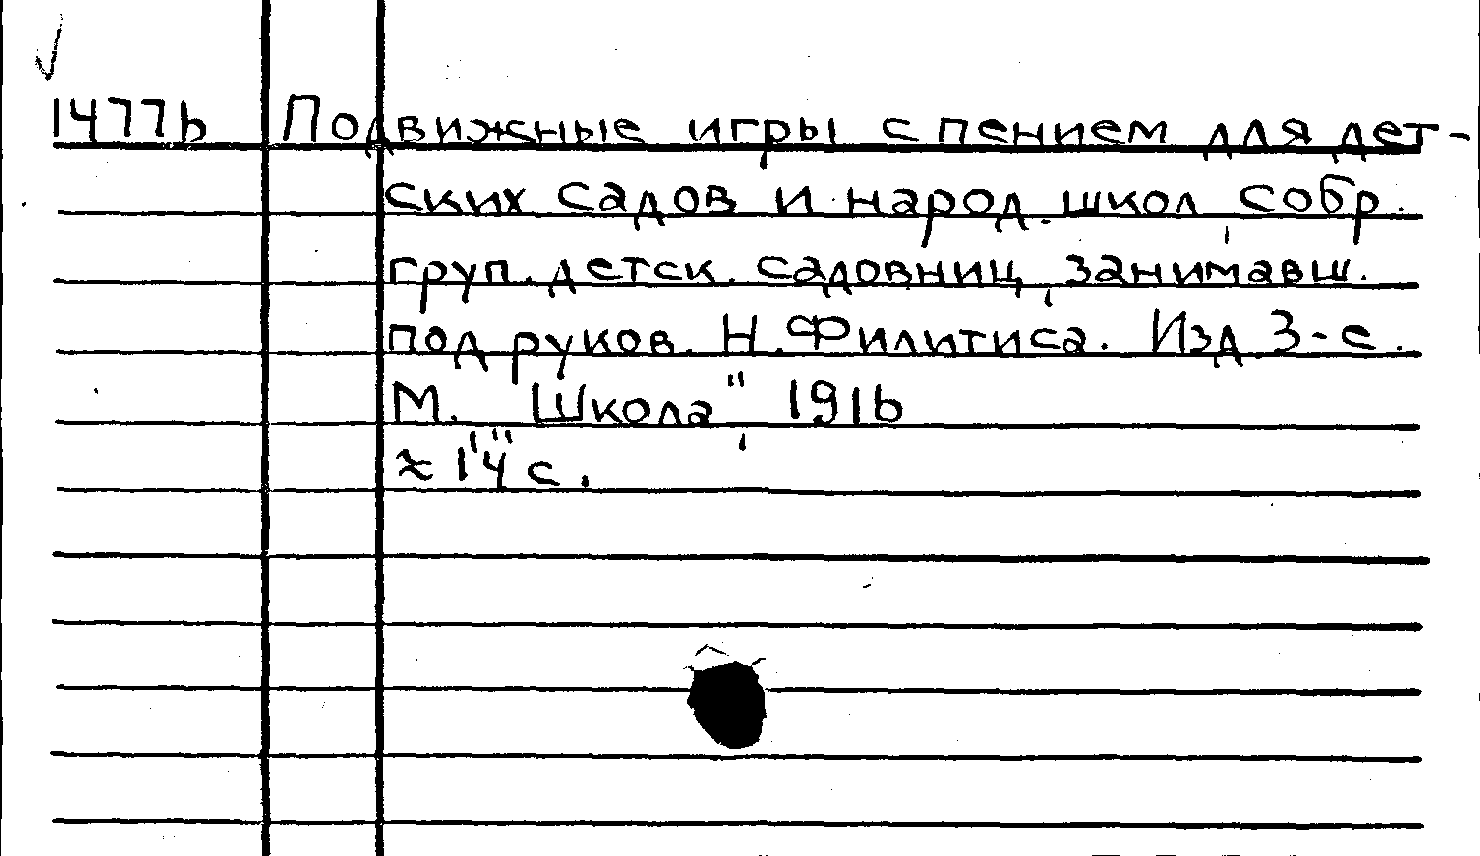 14776 Подвижные игры с пением для дет-
ских садов и народ. школ, собр.
груп. детск. садовниц, занимавш.
под руков. Н. Филитиса. Изд 3-е.
М. "Школа", 1916
14 с.